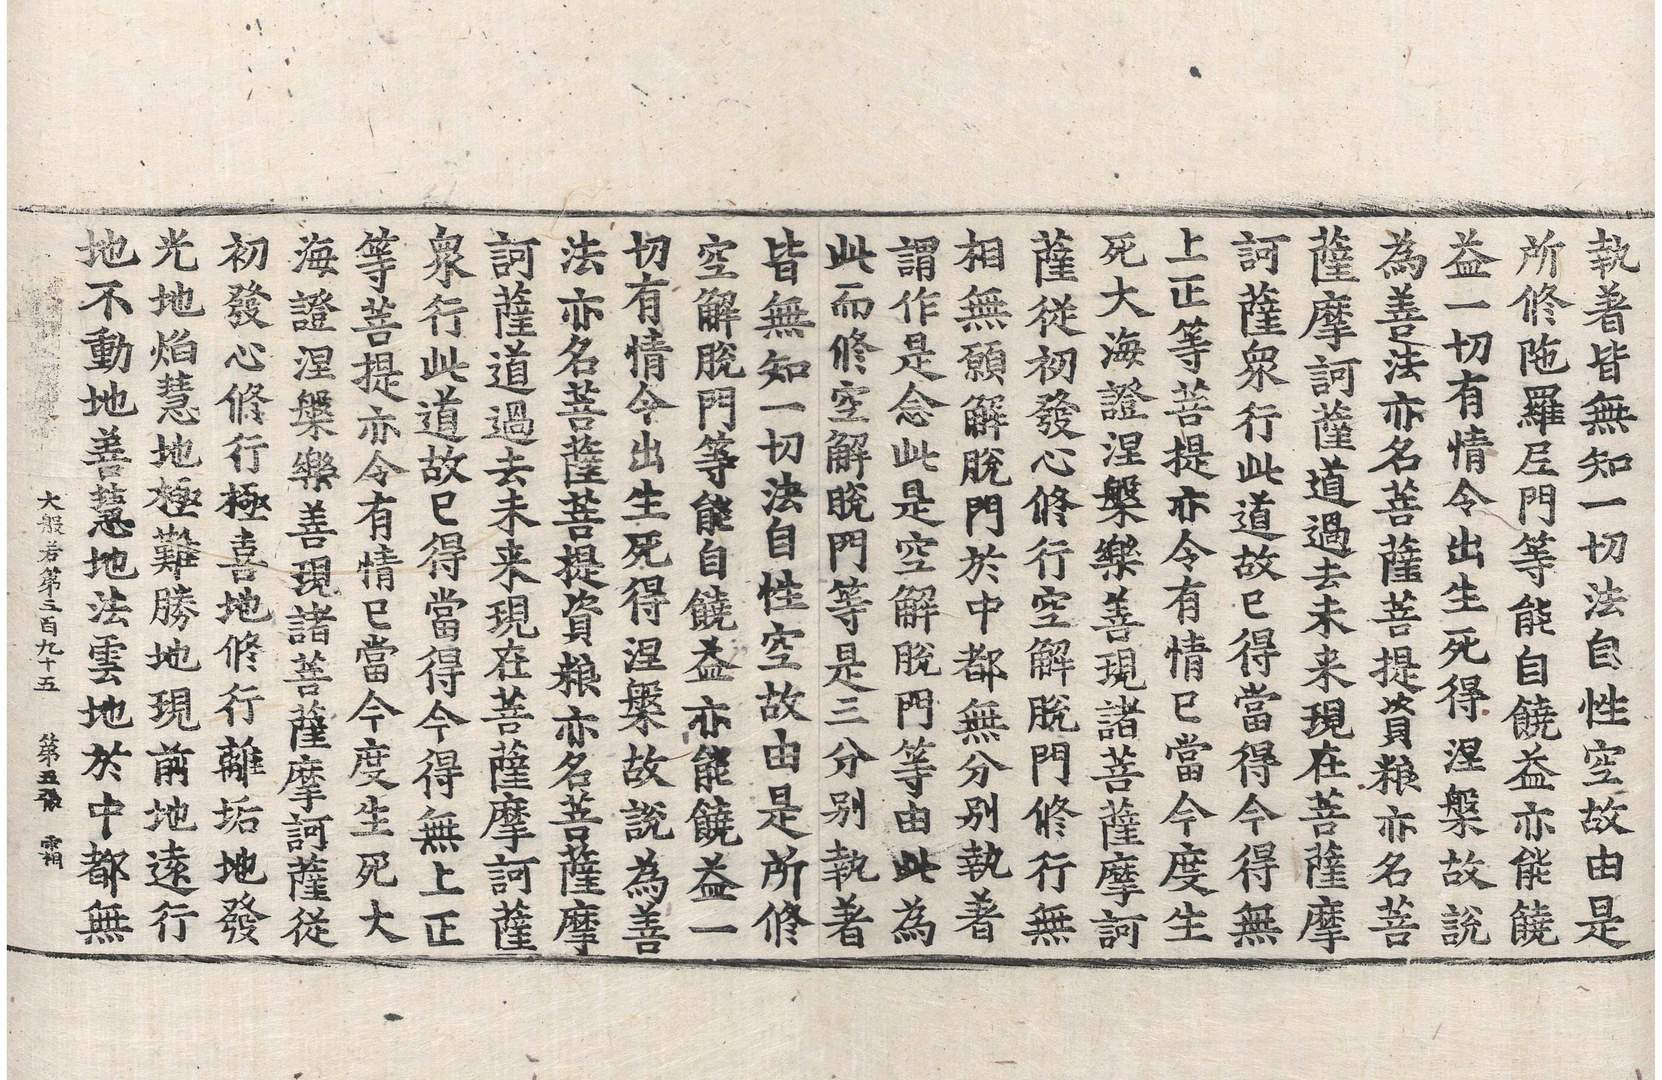 執著皆無知一切法自性空故由是
所修陁羅尼門等能自饒益亦能饒
益一切有情令出生死得涅槃故說
為善法亦名菩薩菩提資粮亦名菩
薩摩訶薩道過去未来現在菩薩摩
訶薩衆行此道故已得當得今得無
上正等菩提亦令有情已當今度生
死大海證涅槃樂善現諸菩薩摩訶
薩從初發心修行空解脫門修行無
相無願解脫門於中都無分别執著
謂作是念此是空解脫門等由此為
此而修空解脫門等是三分别執著
皆無知一切法自性空故由是所修
空解脫門等能自饒益亦能饒益一
切有情令出生死得涅槃故說為善
法亦名菩薩菩提資粮亦名菩薩摩
訶薩道過去未来現在菩薩摩訶薩
衆行此道故已得當得今得無上正
等菩提亦令有情已當今度生死大
海證涅槃樂善現諸菩薩摩訶薩從
初發心修行極喜地修行離垢地發
光地焰慧地極難勝地現前地遠行
地不動地善慧地法雲地於中都無
大般若第三百九十五 第五張 霜